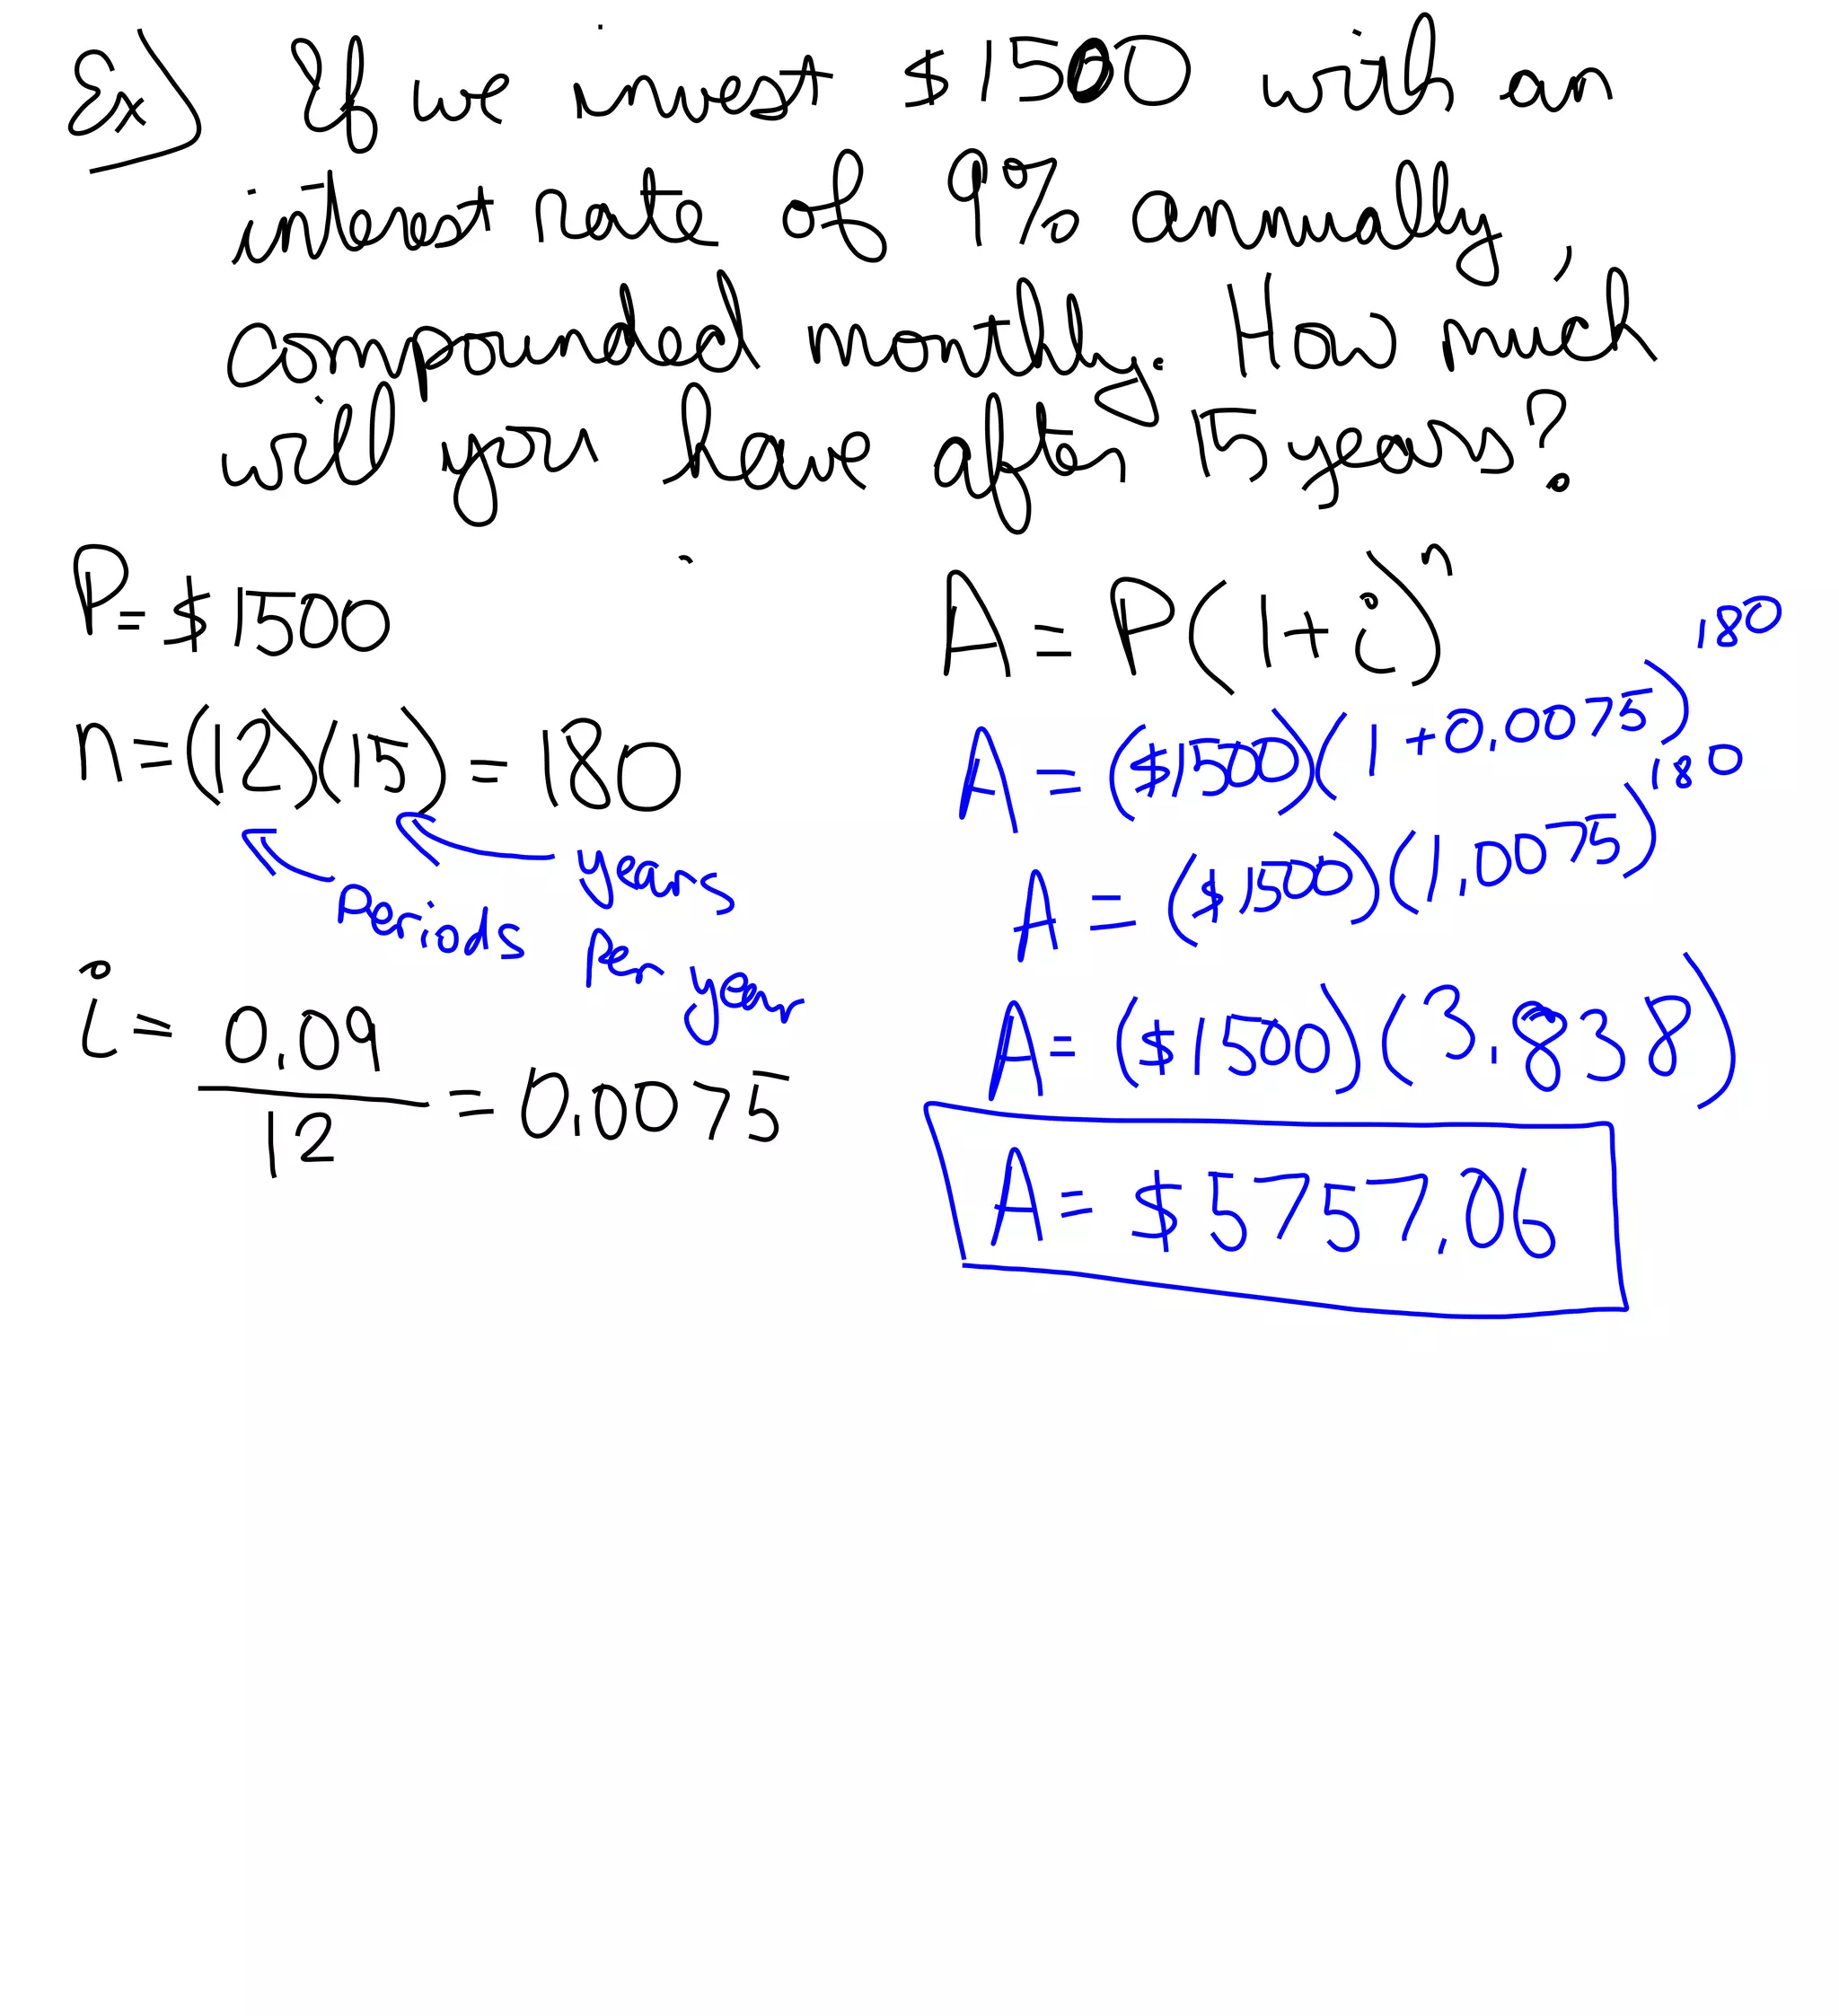 Ex) If we invest $1500 with an
interest rate of 9% annually,
compounded monthly. How much
will you have after 15 years?
P = $1500
n = (12)(15) = 180
years
periods per year
i = 0.09 / 12 = 0.0075
A = P(1+i)^n
A = ($1500)(1+0.0075)^180
A = ($1500)(1.0075)^180
A = ($1500)(3.838)
A = $5757.06